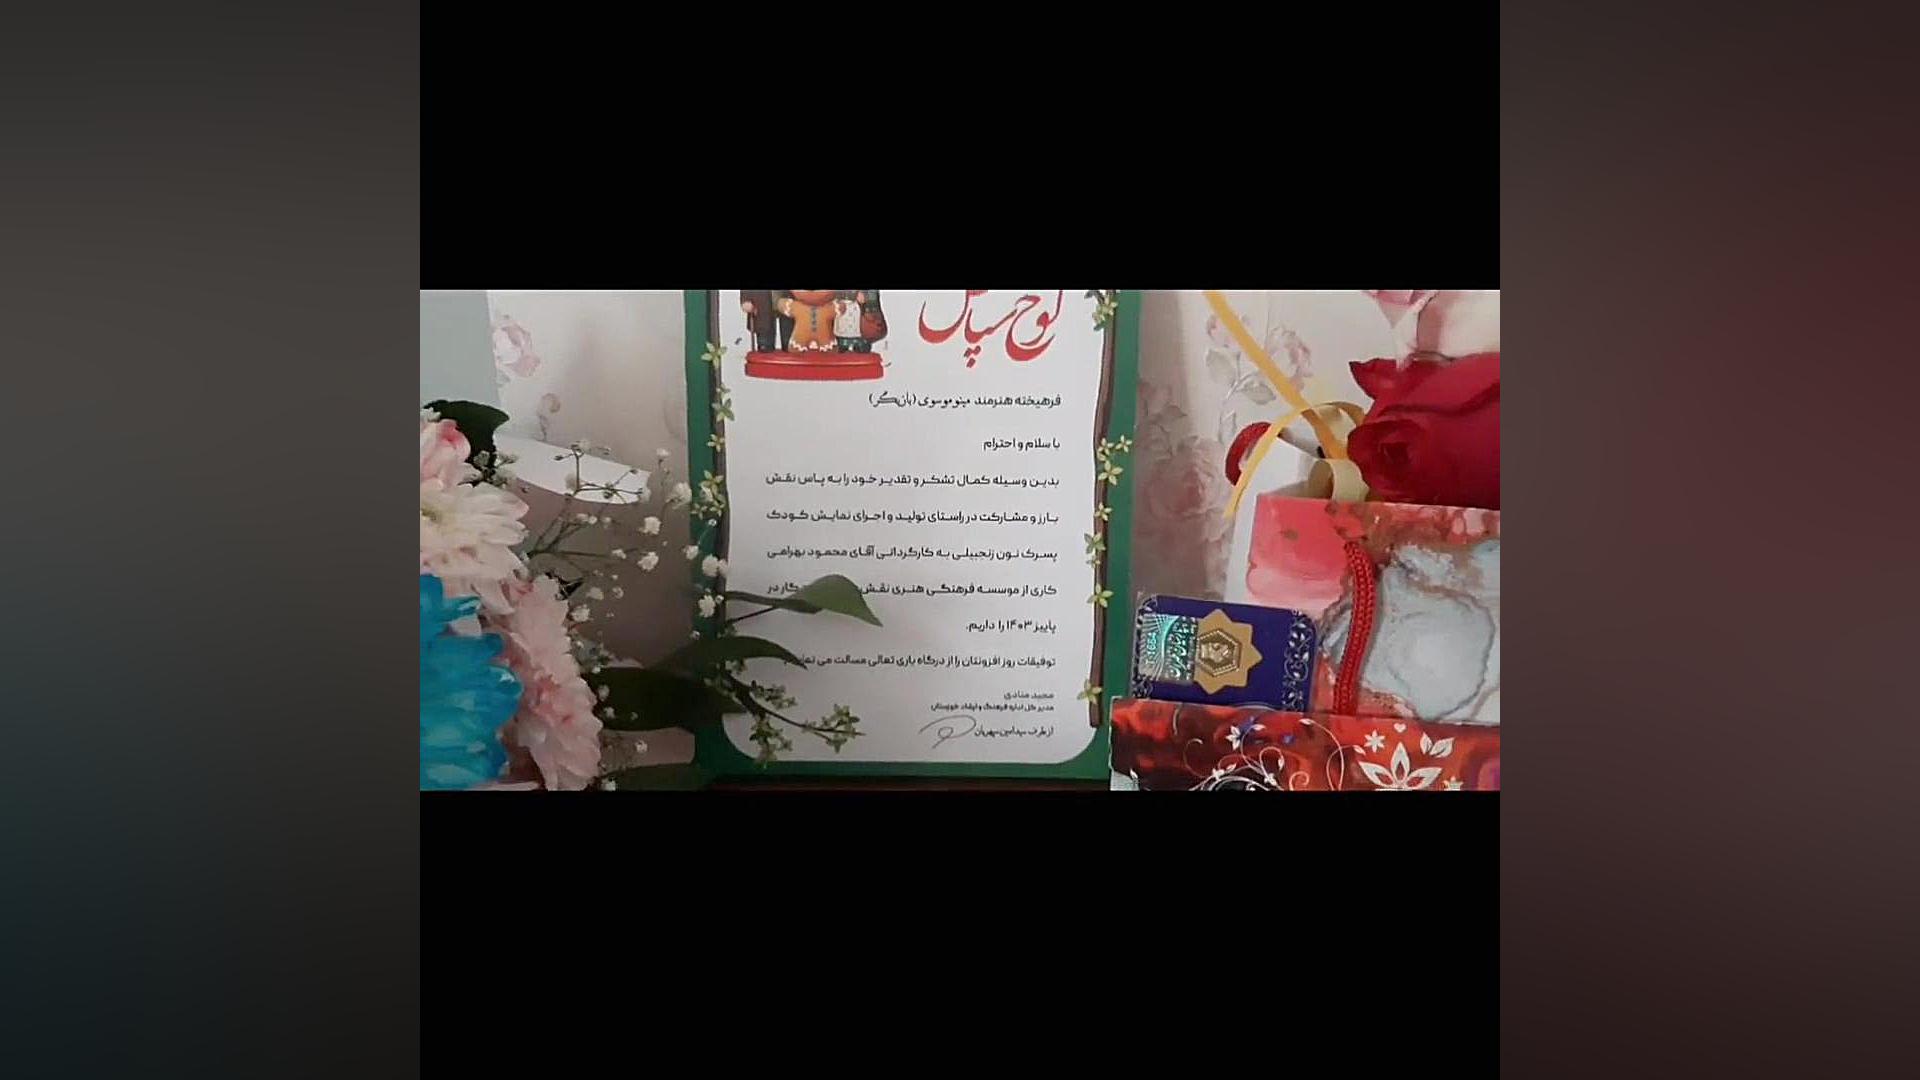 لوح سپاس
فرهیخته هنرمند مینو موسوی (بازیگر)
با سلام و احترام
بدین وسیله کمال تشکر و تقدیر خود را به پاس نقش
بارز و مشارکت در راستای تولید و اجرای نمایش کودک
پسرک نون زنجبیلی به کارگردانی آقای محمود بهرامی
کاری از موسسه فرهنگی هنری نقش گار در
پاییز ۱۴۰۳ را داریم.
توفیقات روز افزونتان را از درگاه باری تعالی مسالت می
مجید منادی
مدیر کل اداره فرهنگ و ارشاد خوزستان
از طرف سید امین